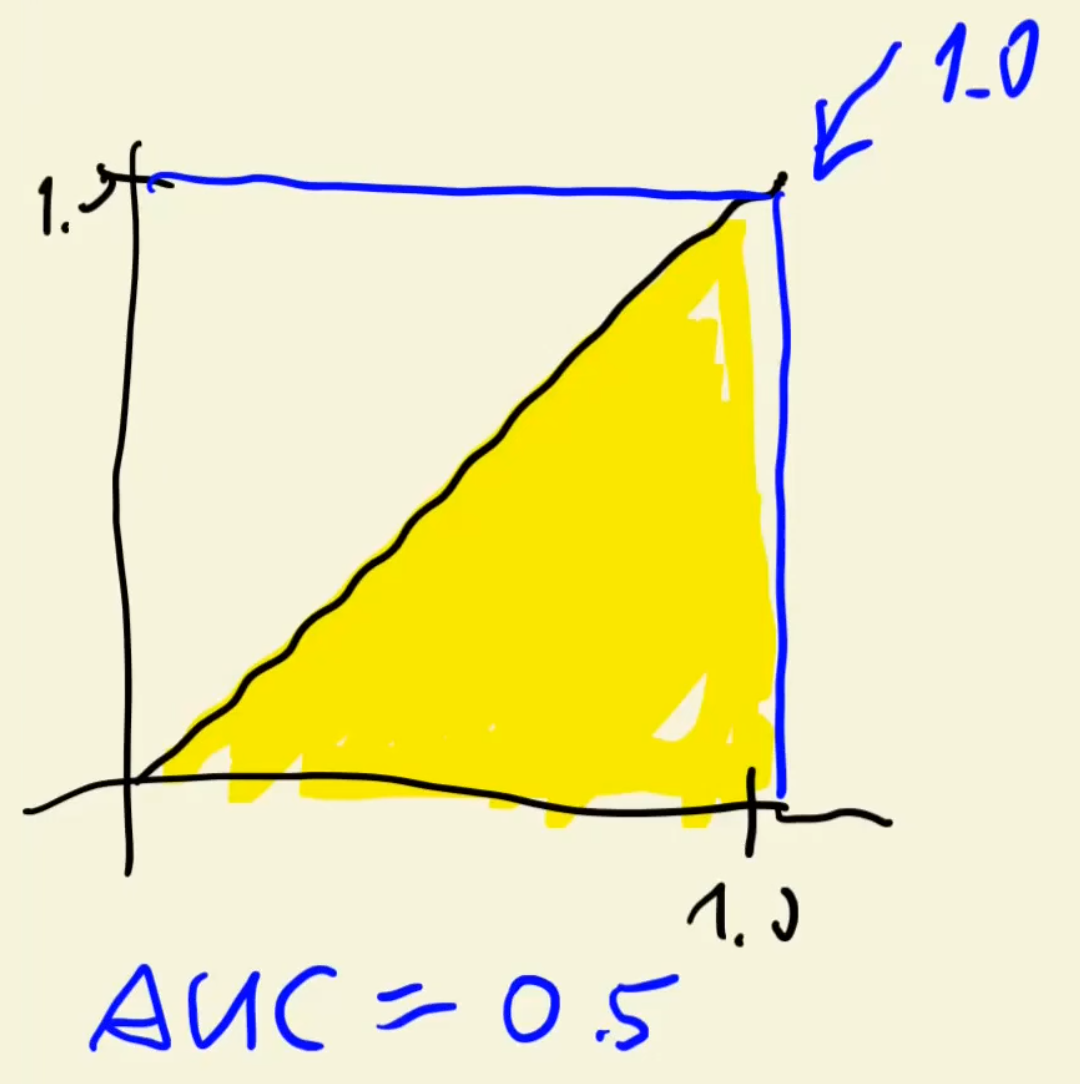 1.0
1.0
1.0
AUC = 0.5